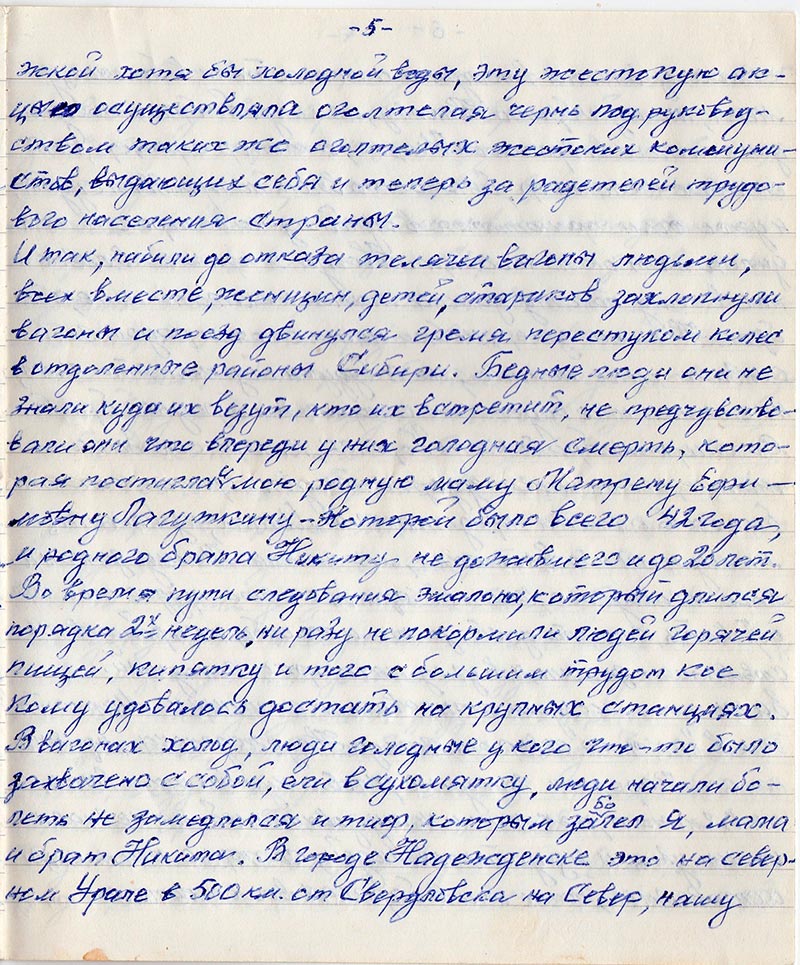 -5-
жкой хотя бы холодной воды, эту жестокую ак-
цию осуществляла оголтелая чернь под руковод-
ством таких же оголтелых жестоких коммуни-
стов, выдающих себя и теперь за радетелей трудо-
вого населения страны.
Итак, набили до отказа телячьи вагоны людьми,
всех вместе, женщин, детей, стариков, захлопнули
вагоны и поезд двинулся гремя перестуком колес
в отдаленные районы Сибири. Бедные люди они не
знали куда их везут, кто их встретит, не предчувство-
вали они что впереди у них голодная смерть, кото-
рая постигла и мою родную маму Матрену Ефи-
мовну Лагуткину - которой было всего 42 года,
и родного брата Никиту не дожившего и до 20 лет.
Во время пути следования эшалона, который длился
порядка 2х недель, ни разу не покормили людей горячей
пищей, кипятку и того с большим трудом кое
кому удовалось достать на крупных станциях.
В вагонах холод, люди голодные у кого что-то было
захвачено с собой, ели в сухомятку, люди начали бо-
леть не замедлился и тиф, которым заболел я, мама
и брат Никита. В городе Надежденске это на север-
ном Урале в 500 км. от Свердловска на Север, нашу